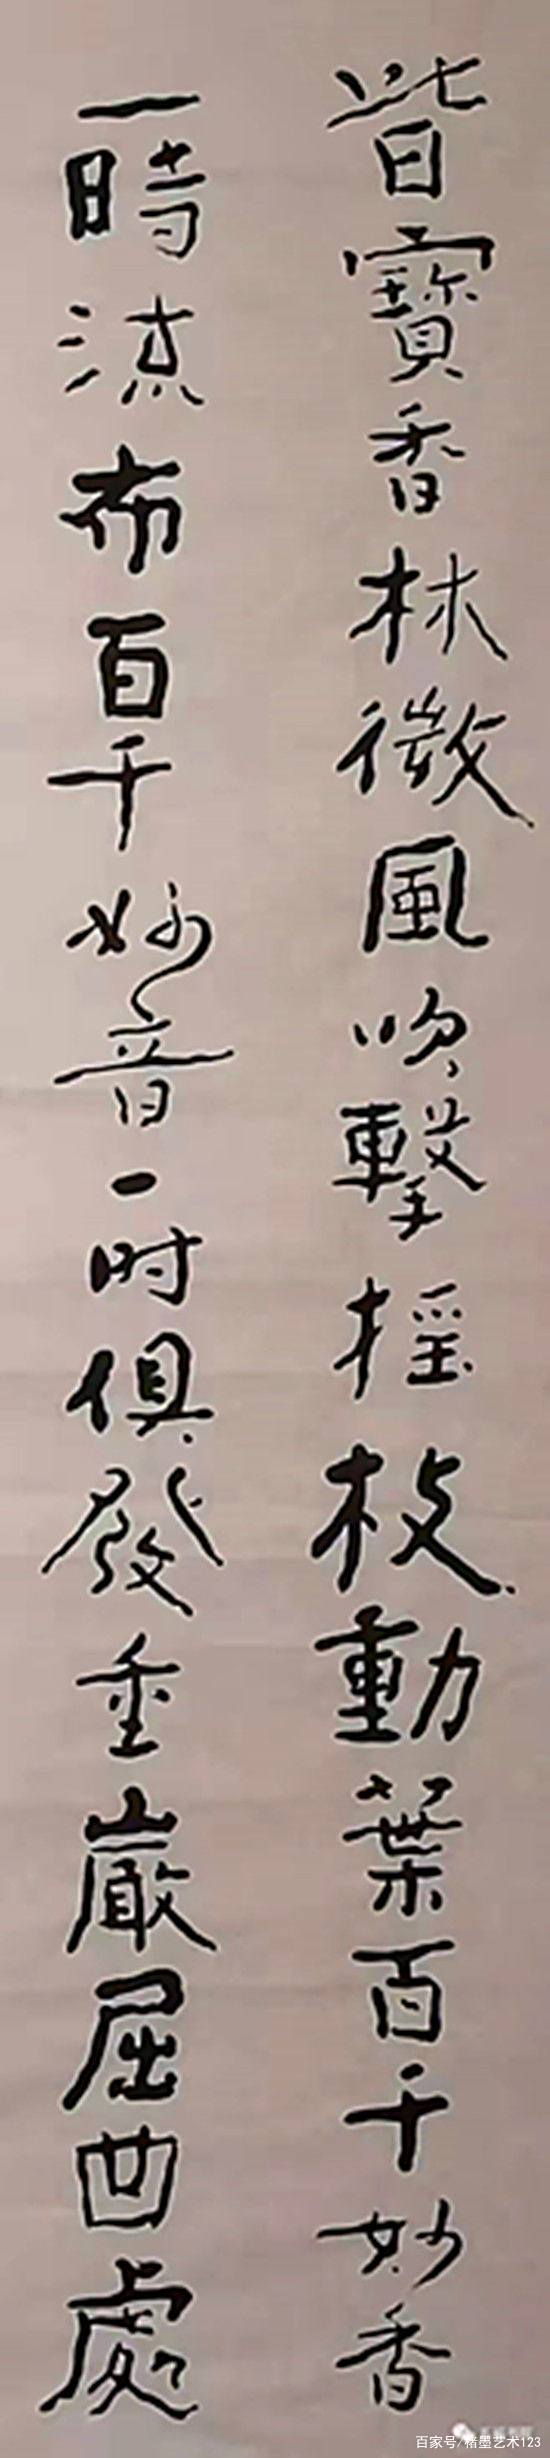 皆寶香林微風吹擊摇枝動葉百千妙香
一時流布百千妙音一时俱發重巖屈凹處
百家号/楮墨艺术123